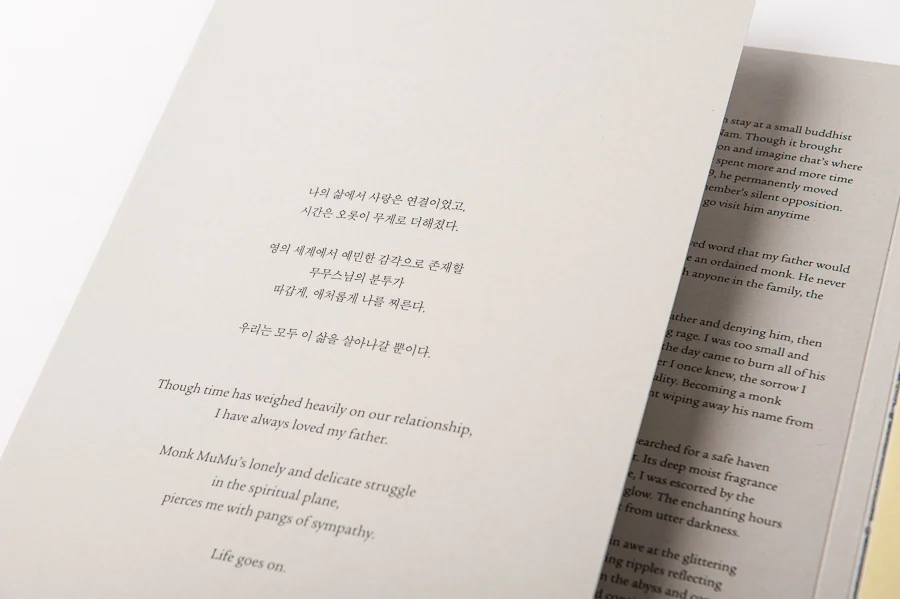 나의 삶에서 사랑은 연결이었고,
시간은 오롯이 무게로 더해졌다.
영의 세계에서 예민한 감각으로 존재할
무무스님의 분투가
따갑게, 애처롭게 나를 찌른다.
우리는 모두 이 삶을 살아나갈 뿐이다.
Though time has weighed heavily on our relationship,
I have always loved my father.
Monk MuMu's lonely and delicate struggle
in the spiritual plane,
pierces me with pangs of sympathy.
Life goes on.
stay at a small buddhist
Though it brought
on and imagine that's where
spent more and more time
he permanently moved
member's silent opposition.
go visit him anytime
word that my father would
an ordained monk. He never
anyone in the family, the
father and denying him, then
rage. I was too small and
the day came to burn all of his
I once knew, the sorrow I
Becoming a monk
wiping away his name from
searched for a safe haven
Its deep moist fragrance
I was escorted by the
glow. The enchanting hours
from utter darkness.
in awe at the glittering
ripples reflecting
the abyss and